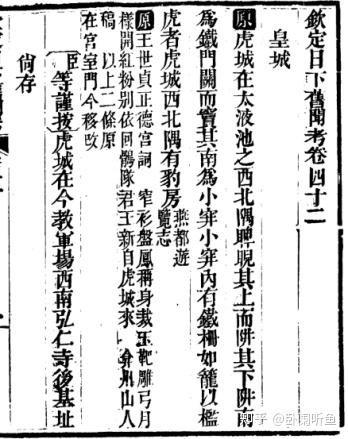 欽定日下舊聞考卷四十二
皇城
原虎城在太液池之西北隅睥睨其上而阱其下阱南
為鐵門關而竇其南為小穽小穽內有鐵柵如籠以檻
虎者虎城西北隅有豹房燕都遊
覽志
原王世貞正德宮詞 窄衫盤鳳稱身裁玉靶雕弓月
樣開紅粉別依回鶻隊君王新自虎城來 弇州山人
稿 以上二條原
在宮室門今移改
臣等謹按虎城在今教軍場西南弘仁寺後基址
尚存
知乎 @卧澜听鱼